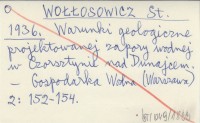 WOŁŁOSOWICZ St.
1936. Warunki geologiczne
projektowanej zapory wodnej
w Czorsztynie nad Dunajcem.
– Gospodarka Wodna (Warszawa)
2: 152-154.